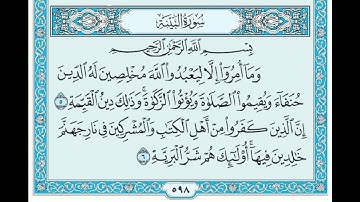 سُورَةُ البَيِّنَةِ
بِسْمِ ٱللَّهِ ٱلرَّحْمَٰنِ ٱلرَّحِيمِ
وَمَآ أُمِرُوٓا۟ إِلَّا لِيَعْبُدُوا۟ ٱللَّهَ مُخْلِصِينَ لَهُ ٱلدِّينَ
حُنَفَآءَ وَيُقِيمُوا۟ ٱلصَّلَوٰةَ وَيُؤْتُوا۟ ٱلزَّكَوٰةَ ۚ وَذَٰلِكَ دِينُ ٱلْقَيِّمَةِ ٥
إِنَّ ٱلَّذِينَ كَفَرُوا۟ مِنْ أَهْلِ ٱلْكِتَٰبِ وَٱلْمُشْرِكِينَ فِى نَارِ جَهَنَّمَ
خَٰلِدِينَ فِيهَآ ۚ أُو۟لَٰٓئِكَ هُمْ شَرُّ ٱلْبَرِيَّةِ ٦
٥٩٨